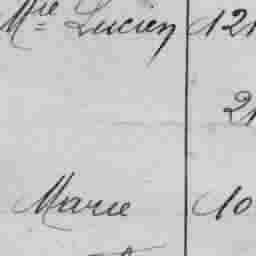 Mie Lucien 121
21
Marie 10